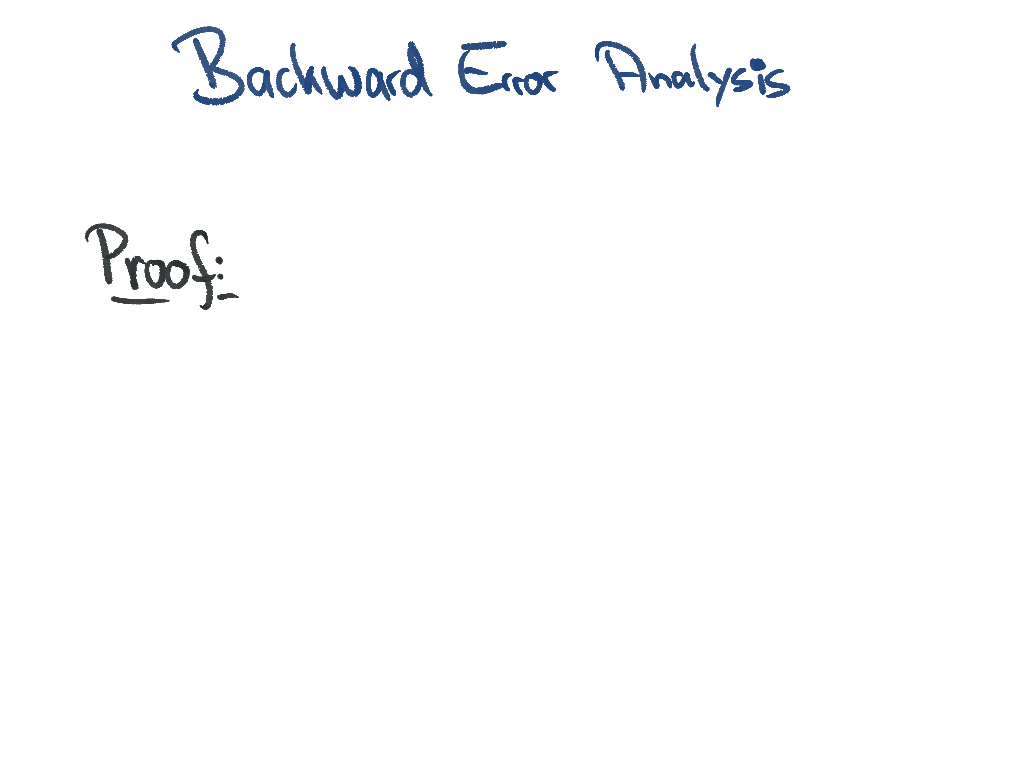 Backward Error Analysis
Proof: